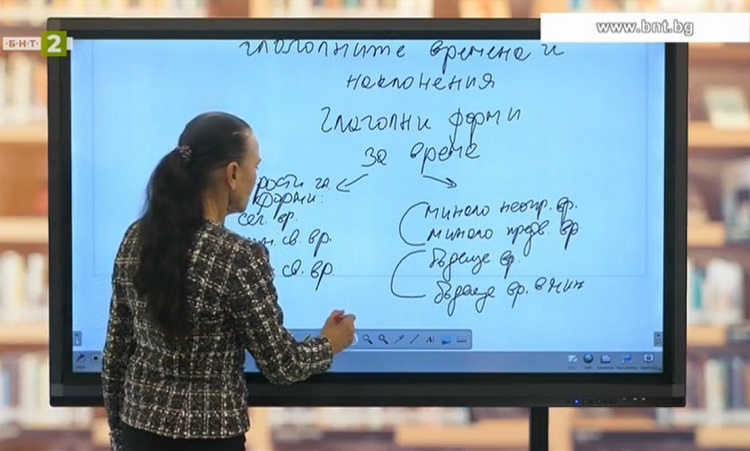 www.bnt.bg
БНТ 2
глаголните времена и
наклонения
глаголни форми
за време
рости гл.
форми:
сег. вр.
н. св. вр.
св. вр.
минало неопр. вр.
минало предв. вр.
бъдеще вр.
бъдеще вр. в мин